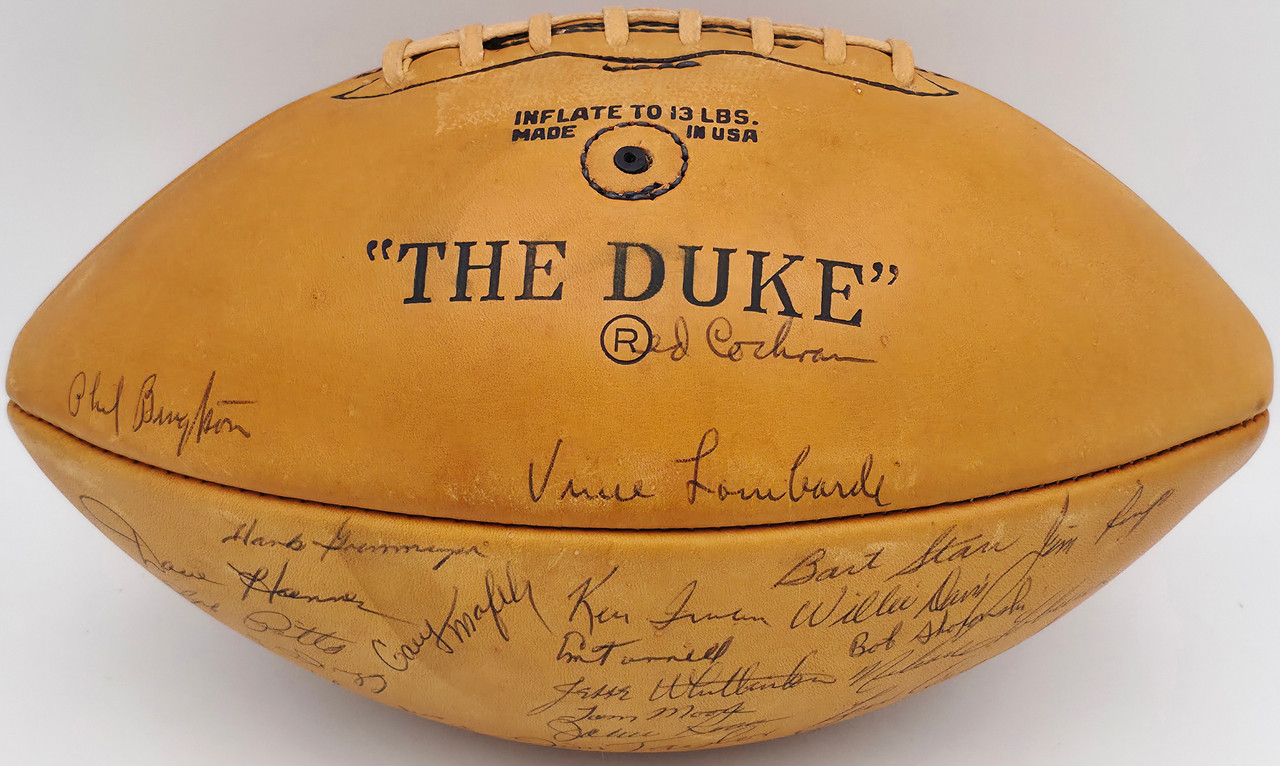 INFLATE TO 13 LBS.
MADE IN USA
"THE DUKE"
®
Red Cochran
Phil Bengtson
Vince Lombardi
Bart Starr
Jim Ringo
Hank Gremminger
Dave Hanner
Ken Iman
Willie Davis
Gary Knafelc
Pitts
Em Tunnell
Bob Skoronski
Jesse Whittenton
Tom Moore